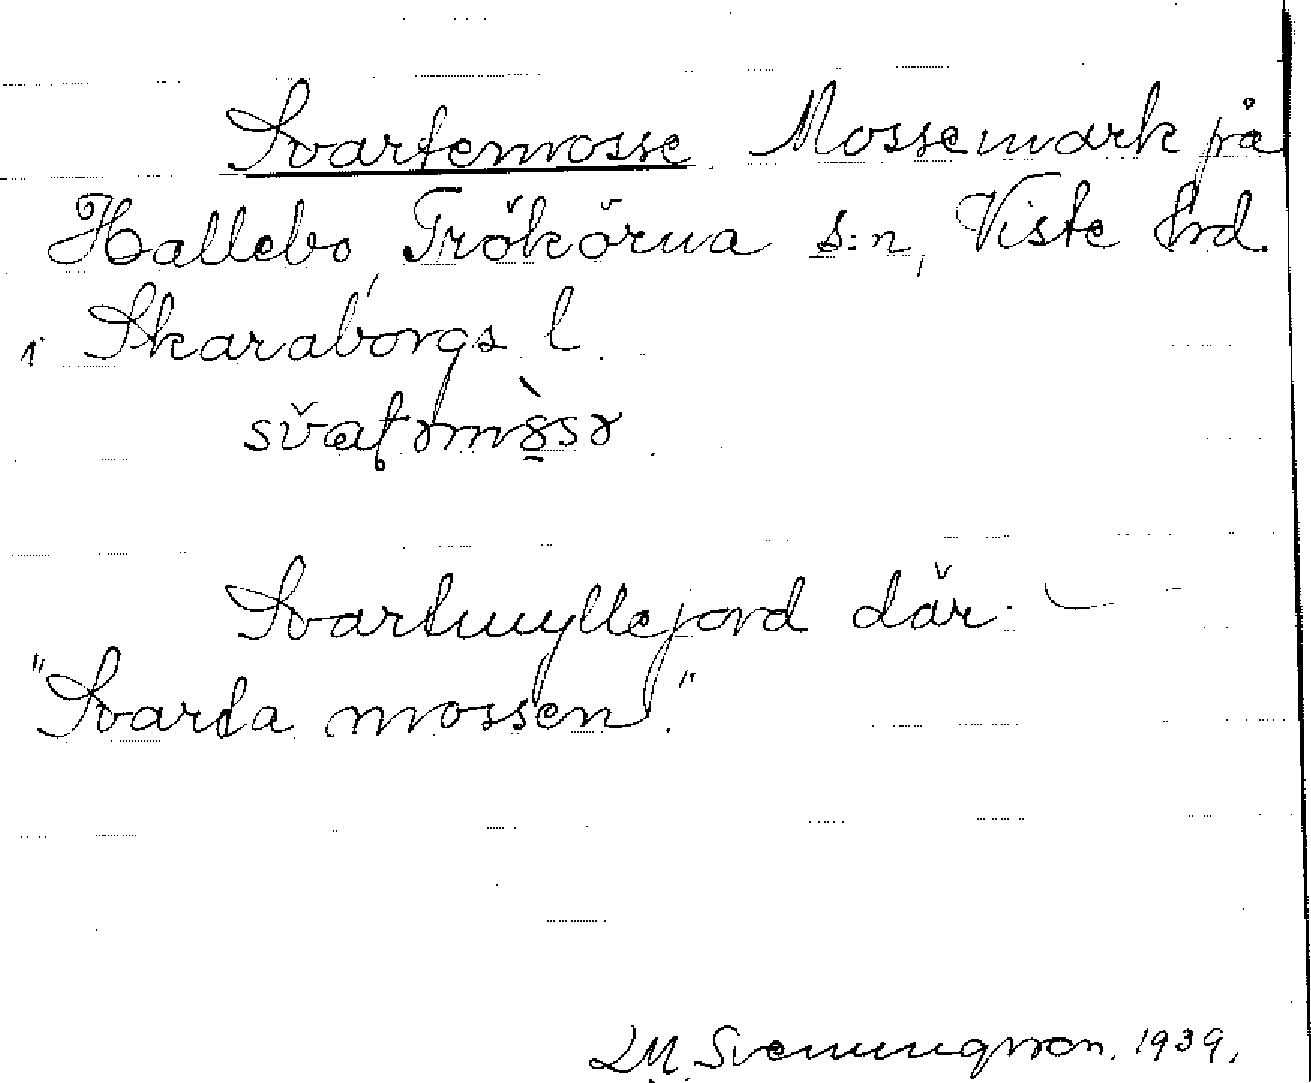 Svartemosse Mossemark på
Hallebo, Trökörna s:n, Viste hrd
i Skaraborgs l.
Svartmyllejord där.
"Svarta mossen".
M. Svenungsson. 1939.